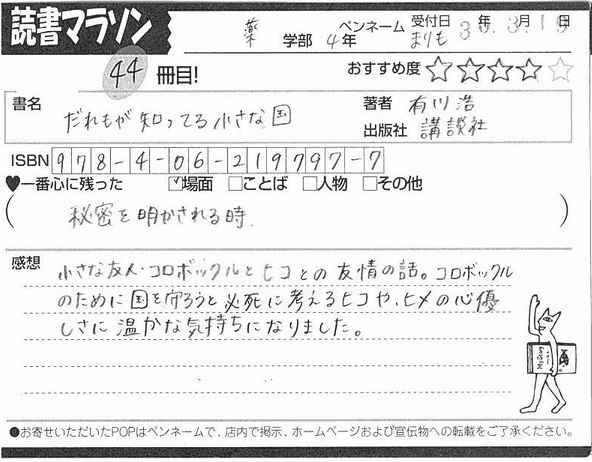 読書マラソン
薬 学部 4年 ペンネーム まりも 受付日 30年 3月 19日
44 冊目!
おすすめ度 ☆☆☆☆☆
書名 だれもが知ってる小さな国
著者 有川浩
出版社 講談社
ISBN 978-4-06-219797-7
♥一番心に残った ☑場面 □ことば □人物 □その他
(秘密を明かされる時.)
感想
小さな友人・コロボックルとヒコとの友情の話。コロボックル
のために国を守ろうと必死に考えるヒコや、ヒメの心優
しさに温かな気持ちになりました。
●お寄せいただいたPOPはペンネームで、店内で掲示、ホームページおよび宣伝物への転載をご了承ください。